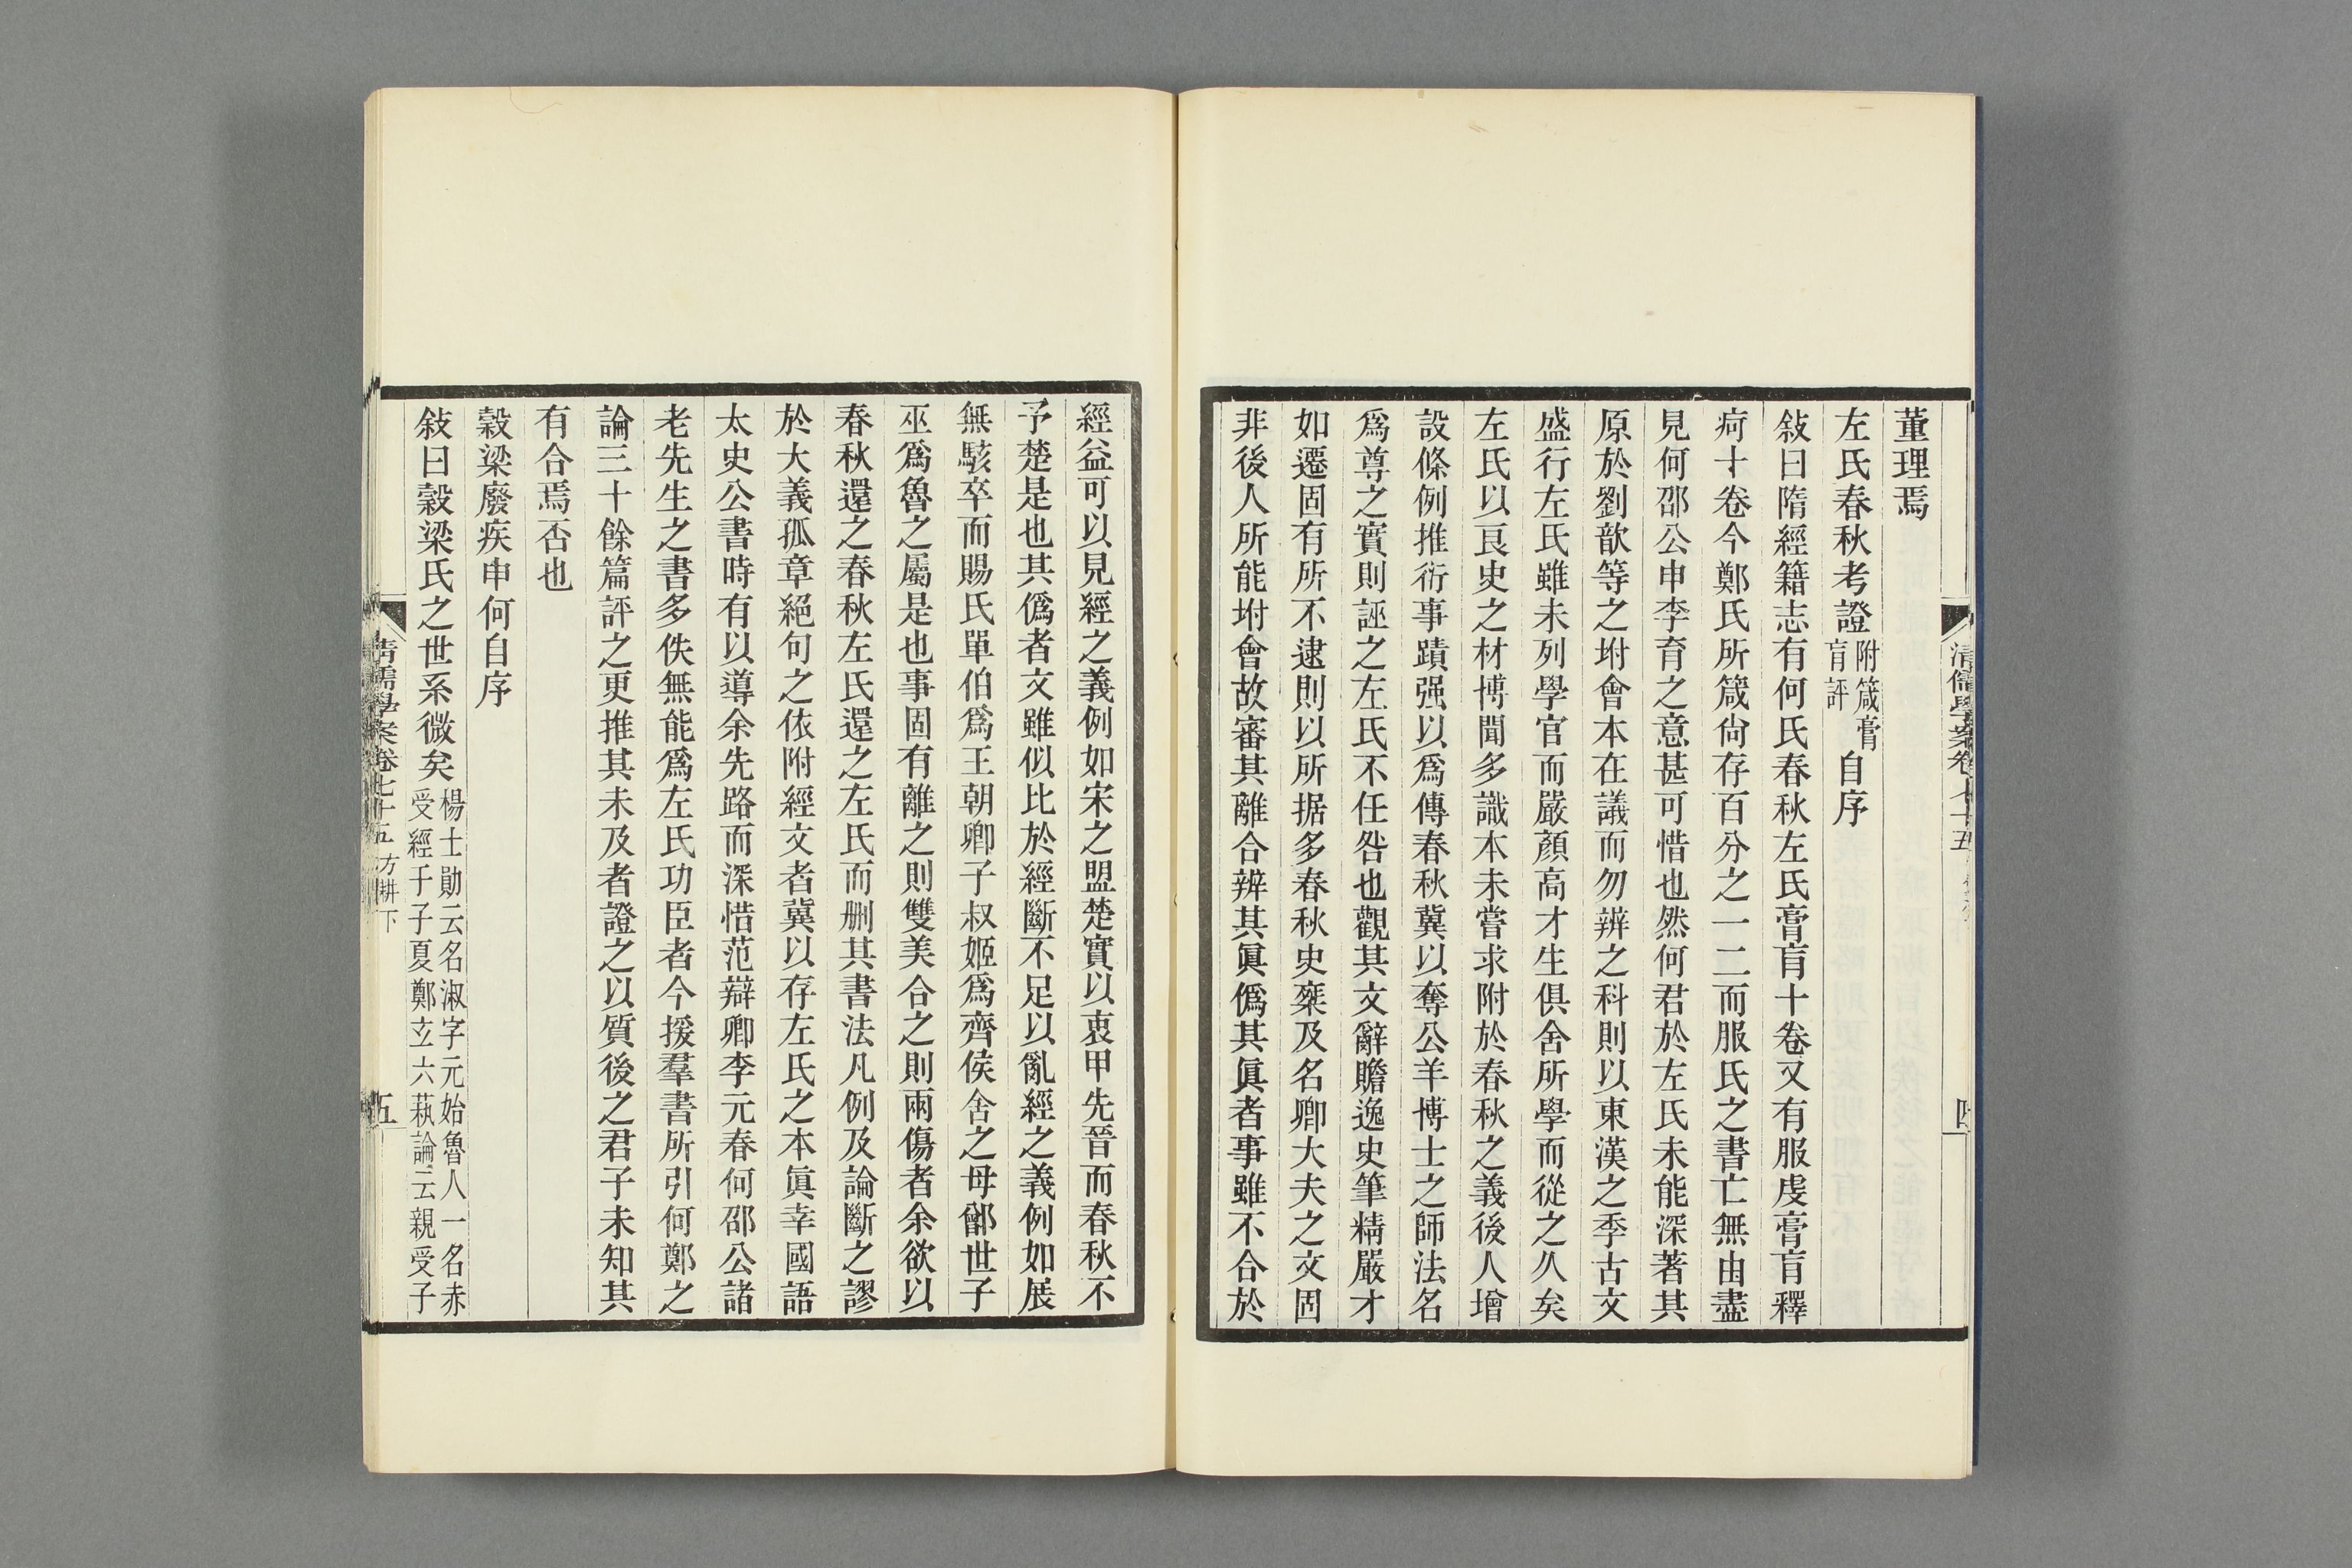 清儒學案卷七十五
董理焉
左氏春秋考證附箴膏肓評自序
敍曰隋經籍志有何氏春秋左氏膏肓十卷又有服虔膏肓釋
疴十卷今鄭氏所箴尙存百分之一二而服氏之書亡無由盡
見何邵公申李育之意甚可惜也然何君於左氏未能深著其
原於劉歆等之坿會本在議而勿辨之科則以東漢之季古文
盛行左氏雖未列學官而嚴顏高才生俱舍所學而從之久矣
左氏以良史之材博聞多識本未嘗求附於春秋之義後人增
設條例推衍事蹟强以爲傳春秋冀以奪公羊博士之師法名
爲尊之實則誣之左氏不任咎也觀其文辭贍逸史筆精嚴才
如遷固有所不逮則以所据多春秋史乘及名卿大夫之文固
非後人所能坿會故審其離合辨其眞僞其眞者事雖不合於
經益可以見經之義例如宋之盟楚實以衷甲先晉而春秋不
予楚是也其僞者文雖似比於經斷不足以亂經之義例如展
無駭卒而賜氏單伯爲王朝卿子叔姬爲齊侯舍之母鄫世子
巫爲魯之屬是也事固有離之則雙美合之則兩傷者余欲以
春秋還之春秋左氏還之左氏而刪其書法凡例及論斷之謬
於大義孤章絕句之依附經文者冀以存左氏之本眞幸國語
太史公書時有以導余先路而深惜范辯卿李元春何邵公諸
老先生之書多佚無能爲左氏功臣者今援羣書所引何鄭之
論三十餘篇評之更推其未及者證之以質後之君子未知其
有合焉否也
穀梁廢疾申何自序
敍曰穀梁氏之世系微矣楊士勛云名淑字元始魯人一名赤受經于子夏鄭玄六蓺論云親受子
清儒學案卷七十五 方耕下 五